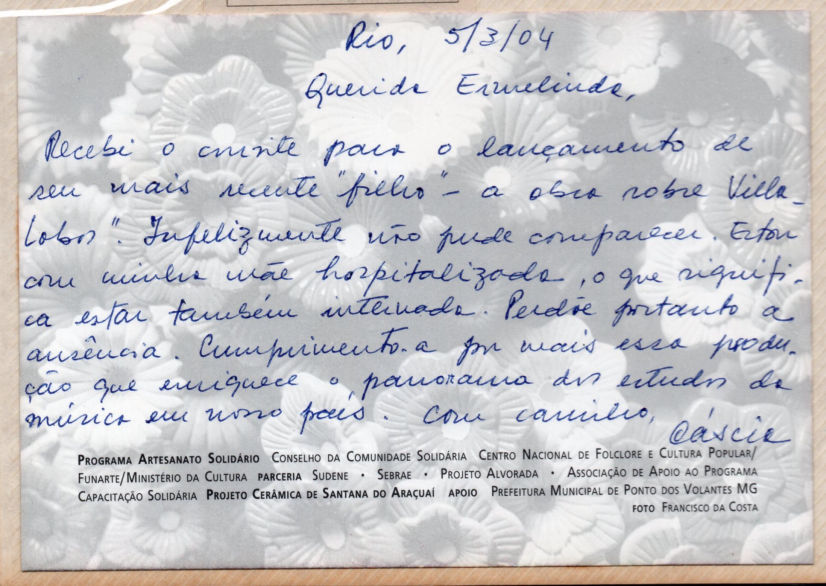 Rio, 5/3/04
Querida Ermelinda,
Recebi o convite para o lançamento de
seu mais recente "filho" – a obra sobre Villa-
Lobos". Infelizmente não pude comparecer. Estou
com minha mãe hospitalizada, o que signifi-
ca estar também internada. Perdoe portanto a
ausência. Cumprimento-a por mais essa produ-
ção que enriquece o panorama dos estudos da
música em nosso país. Com carinho,
Cáscia
PROGRAMA ARTESANATO SOLIDÁRIO CONSELHO DA COMUNIDADE SOLIDÁRIA CENTRO NACIONAL DE FOLCLORE E CULTURA POPULAR/
FUNARTE/MINISTÉRIO DA CULTURA PARCERIA SUDENE • SEBRAE • PROJETO ALVORADA • ASSOCIAÇÃO DE APOIO AO PROGRAMA
CAPACITAÇÃO SOLIDÁRIA PROJETO CERÂMICA DE SANTANA DO ARAÇUAÍ APOIO PREFEITURA MUNICIPAL DE PONTO DOS VOLANTES MG
FOTO FRANCISCO DA COSTA